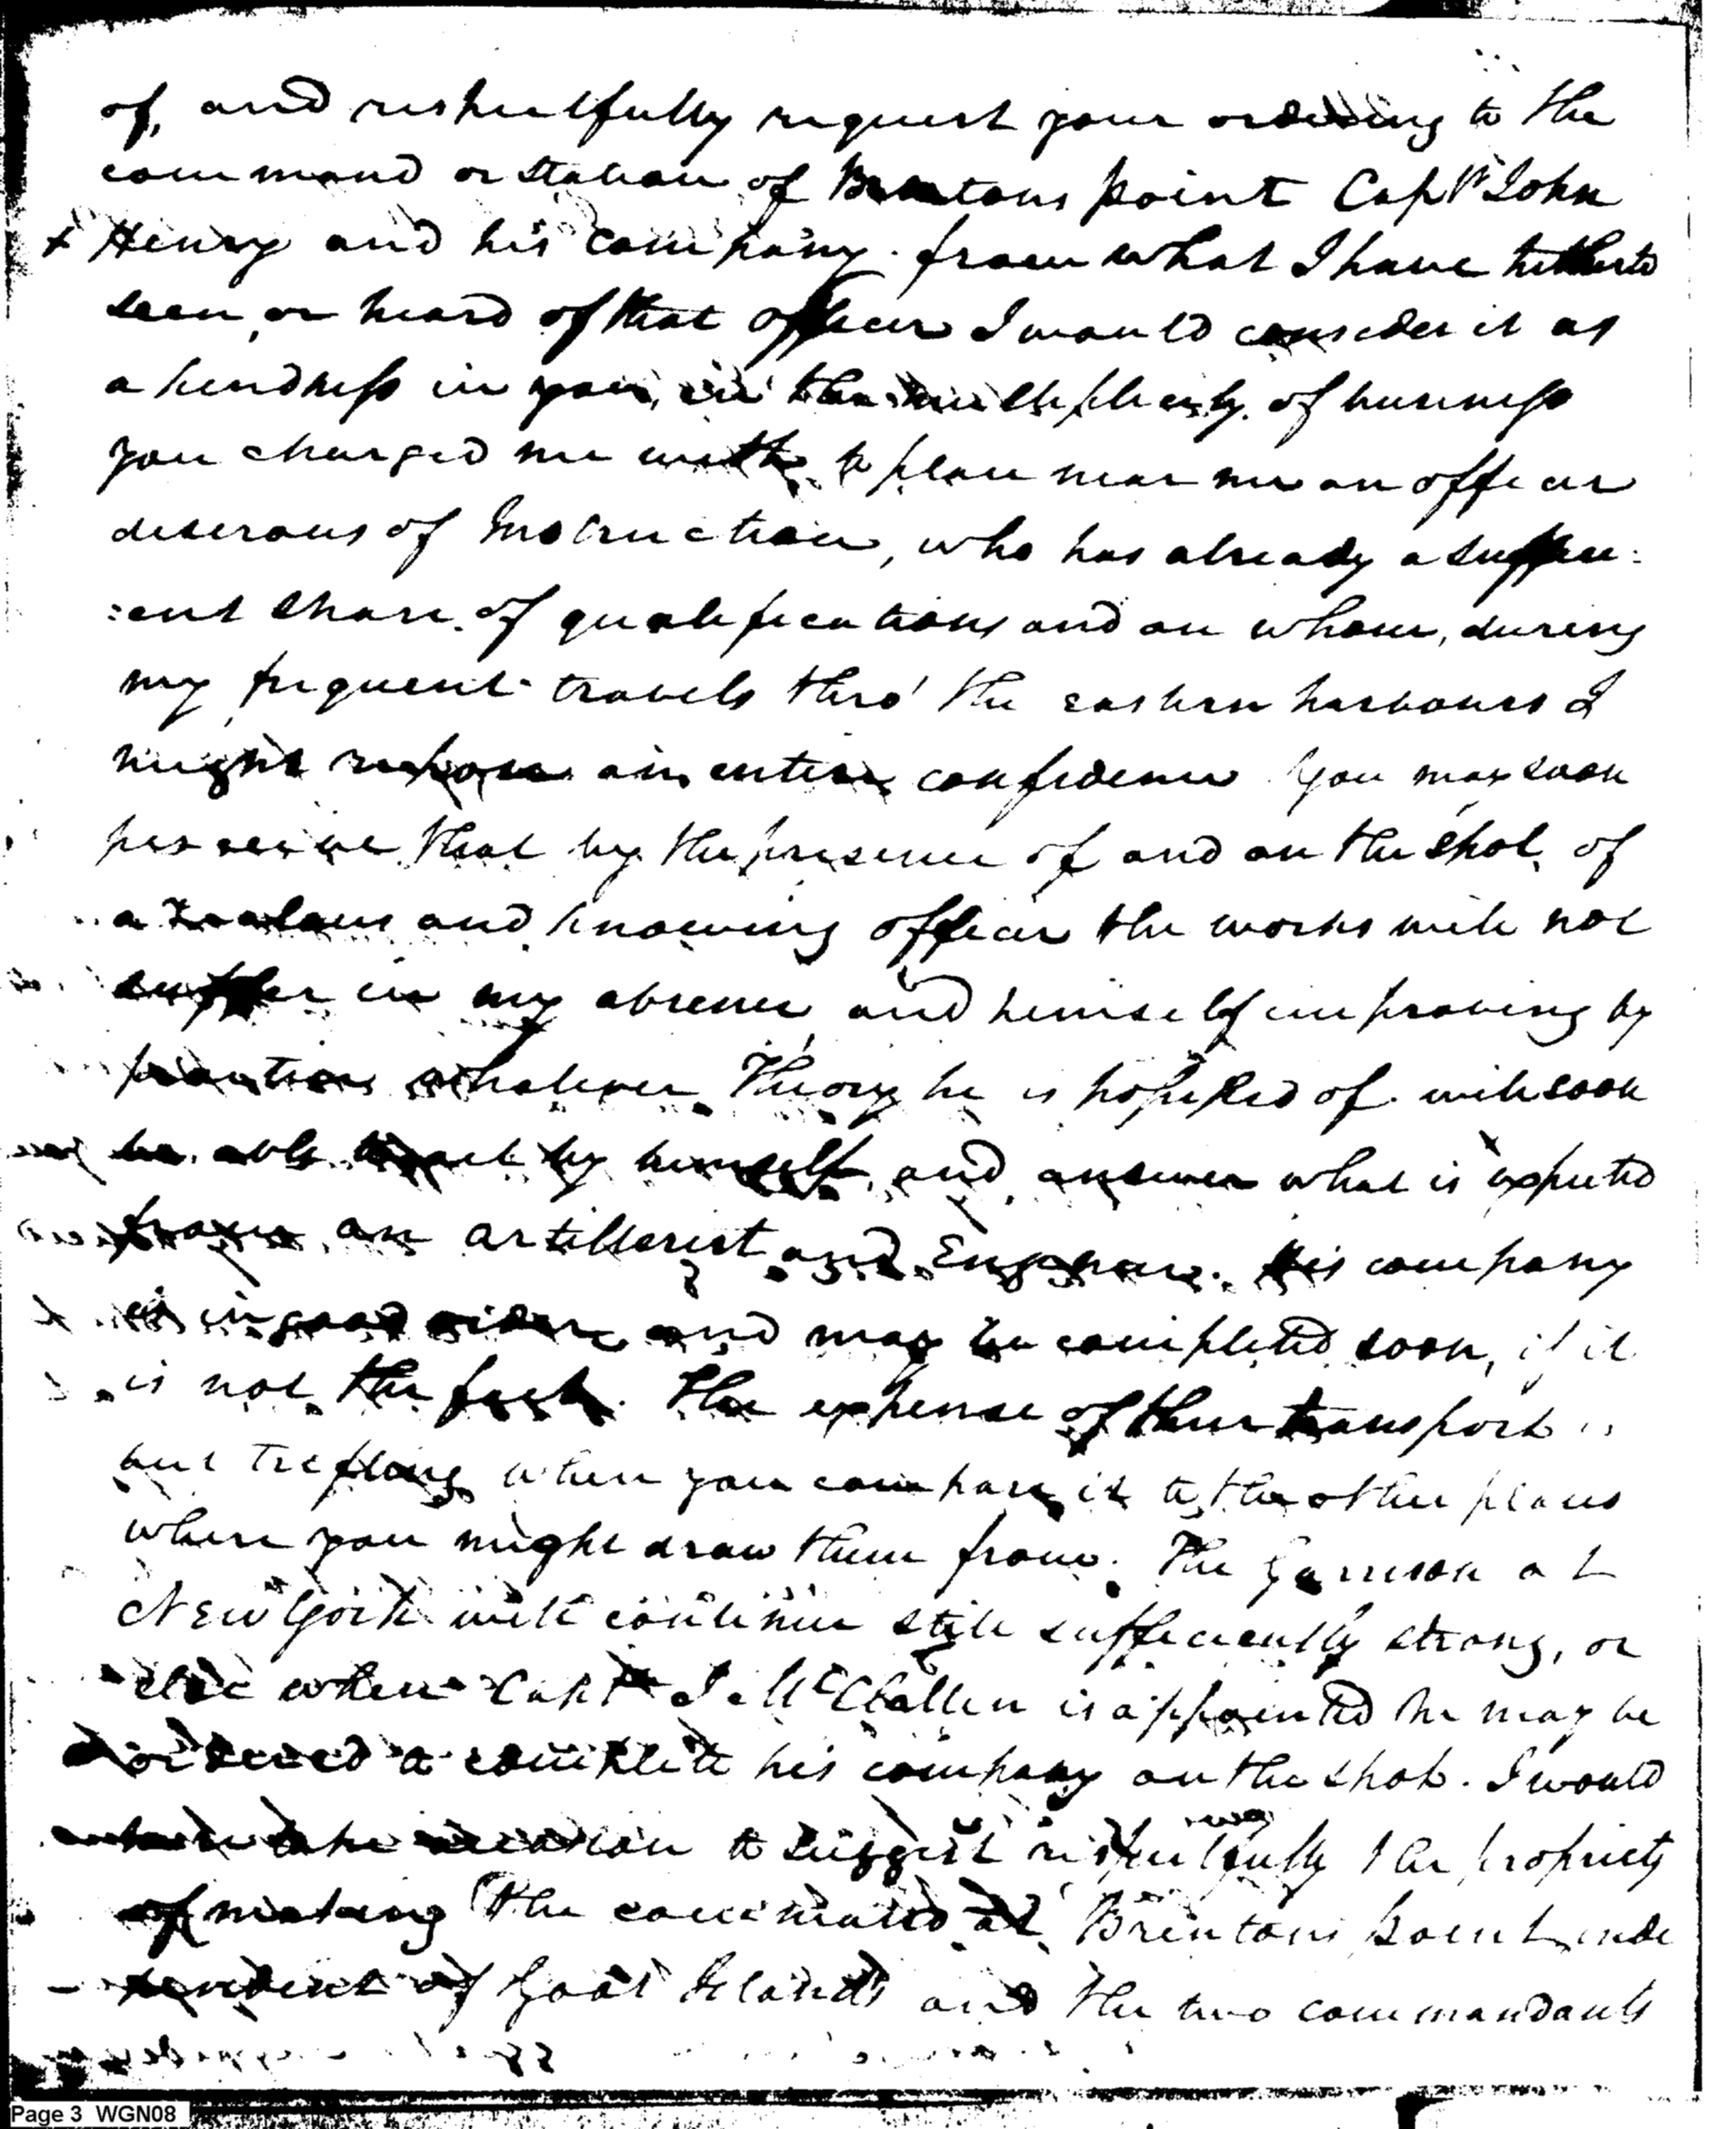 of, and respectfully request your ordering to the
command or station of Brentons point Capt John
+ Henry and his company. from what I have hitherto
seen, or heard of that officer I would consider it as
a kindness in you, in the multiplicity of business
you charged me with to place near me an officer
desirous of Instruction, who has already a suffici:
:ent share of qualifications and on whom, during
my frequent travels thro' the eastern harbours I
might repose an entire confidence. You may soon
perceive that by the presence of and on the spot of
a zealous and knowing officer the works will not
suffer in my absence and himself improving by
practice whatever Theory he is possessed of will soon
be able to act by himself and answer what is expected
from an artillerist and Engineer. His company
is in good order and may be completed soon, if it
is not the fact. The expense of their transport is
but trifling when you compare it to the other places
where you might draw them from. The Garrison at
New York will continue still sufficiently strong, or
else when Capt J. McClallen is appointed he may be
ordered to complete his company on the spot. I would
take the occasion to suggest respectfully the propriety
of making the command at Brentons point inde
- pendent of Goat Island's and the two commandants
Page 3 WGN08